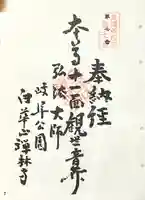 奉納経
本尊十一面観世音菩薩
弘法大師
岐阜公園
白華山禅林寺